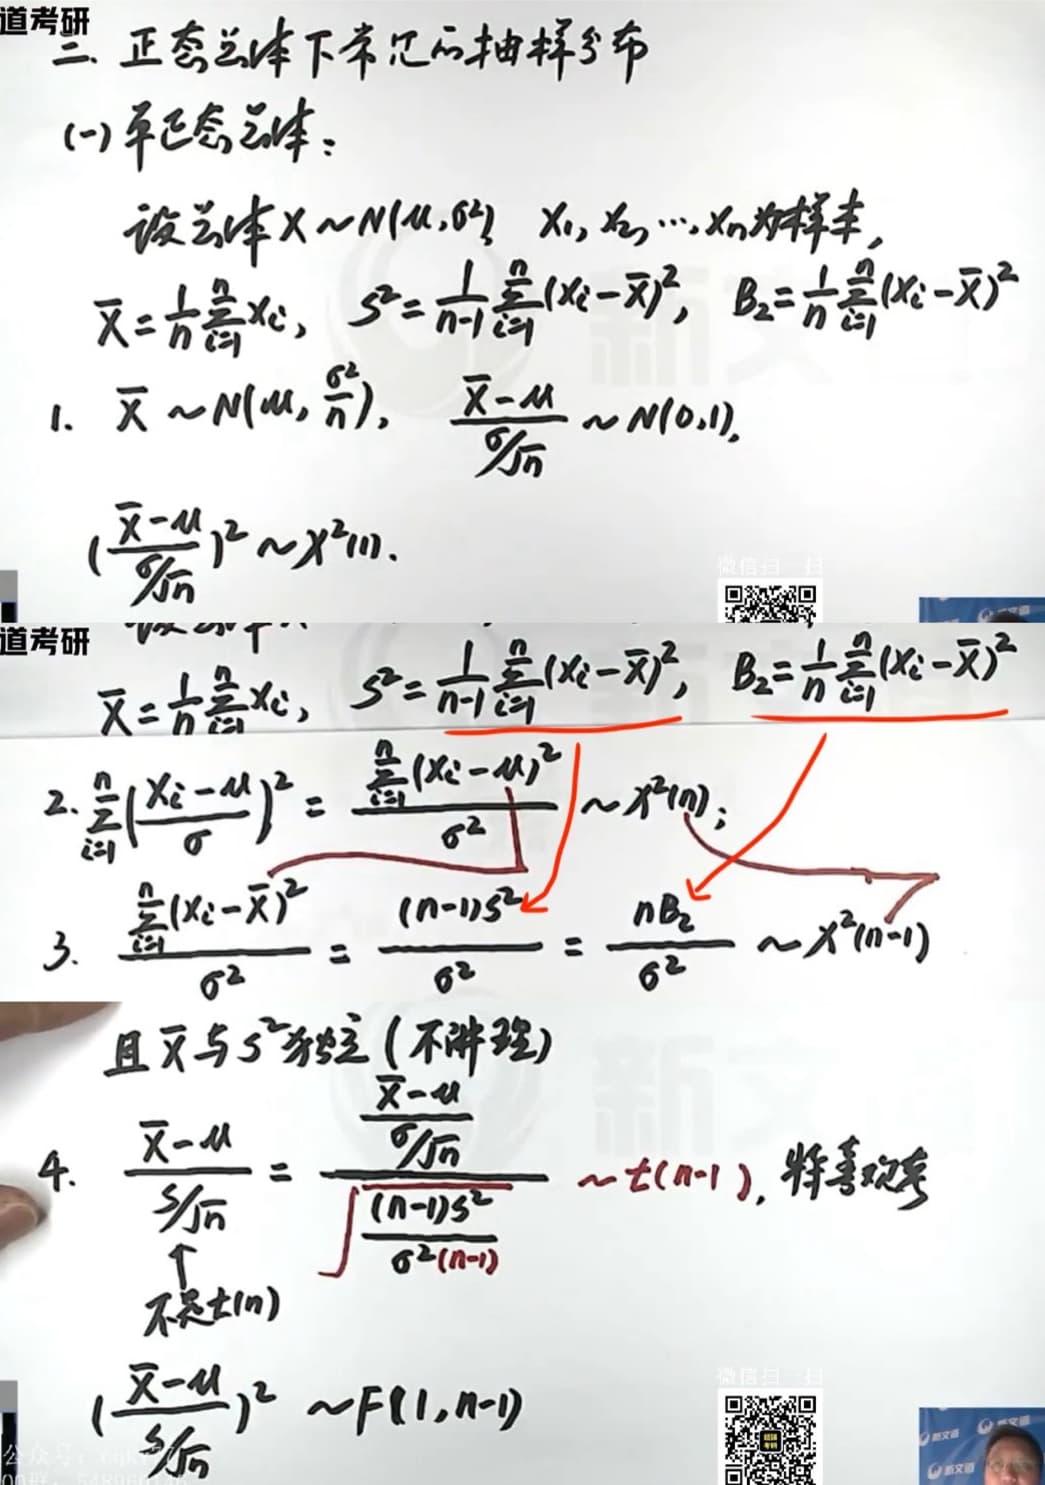 道考研
二. 正态总体下常见的抽样分布
(一) 单正态总体:
设总体X~N(μ,σ²), X₁, X₂, …, Xn为样本,
X̄ = 1/n Σᵢ₌₁ⁿ Xᵢ, S² = 1/(n-1) Σᵢ₌₁ⁿ (Xᵢ - X̄)², B₂ = 1/n Σᵢ₌₁ⁿ (Xᵢ - X̄)²
1. X̄ ~ N(μ, σ²/n), (X̄-μ)/(σ/√n) ~ N(0,1),
((X̄-μ)/(σ/√n))² ~ χ²(1).
微信扫一扫
道考研
X̄ = 1/n Σᵢ₌₁ⁿ Xᵢ, S² = 1/(n-1) Σᵢ₌₁ⁿ (Xᵢ - X̄)², B₂ = 1/n Σᵢ₌₁ⁿ (Xᵢ - X̄)²
2. Σᵢ₌₁ⁿ ((Xᵢ-μ)/σ)² = Σᵢ₌₁ⁿ (Xᵢ-μ)²/σ² ~ χ²(n);
3. Σᵢ₌₁ⁿ (Xᵢ-X̄)²/σ² = (n-1)S²/σ² = nB₂/σ² ~ χ²(n-1)
且X̄与S²独立(不讲理)
4. (X̄-μ)/(S/√n) = ((X̄-μ)/(σ/√n))/√((n-1)S²/(σ²(n-1))) ~ t(n-1), 特喜欢考
↑
不是t(n)
((X̄-μ)/(S/√n))² ~ F(1, n-1)
微信扫一扫
新文道
新文道
新文道